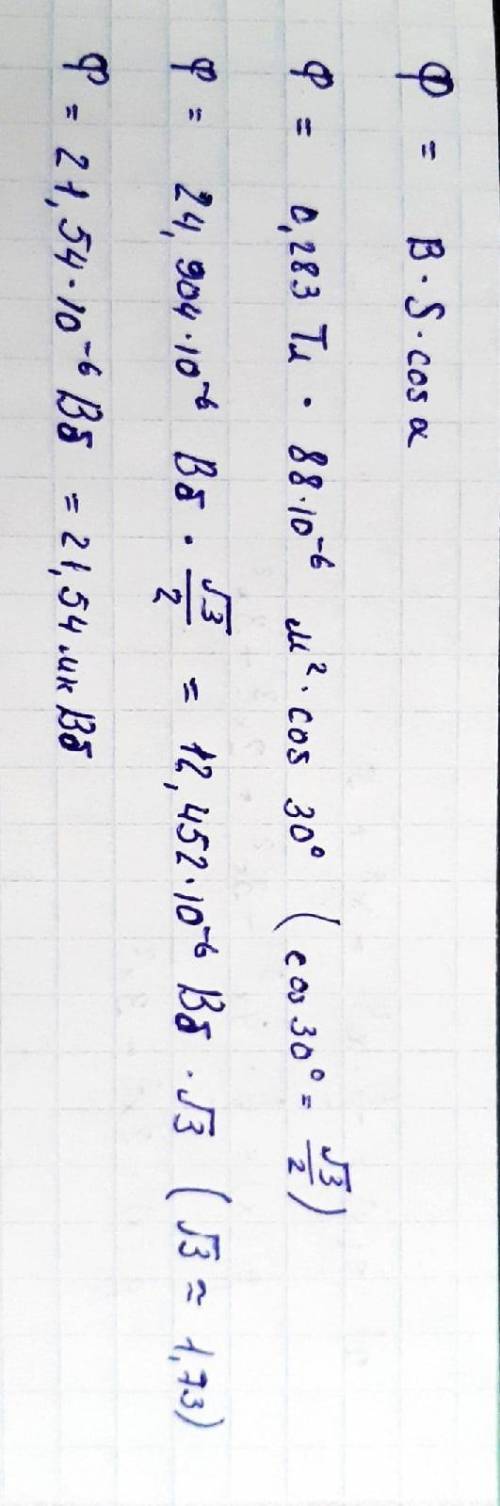 Ф = B · S · cos α
Ф = 0,283 Тл · 88·10⁻⁶ м² · cos 30° (cos 30° = √3/2)
Ф = 24,904·10⁻⁶ Вб · √3/2 = 12,452·10⁻⁶ Вб · √3 (√3 ≈ 1,73)
Ф = 21,54·10⁻⁶ Вб = 21,54 мк Вб